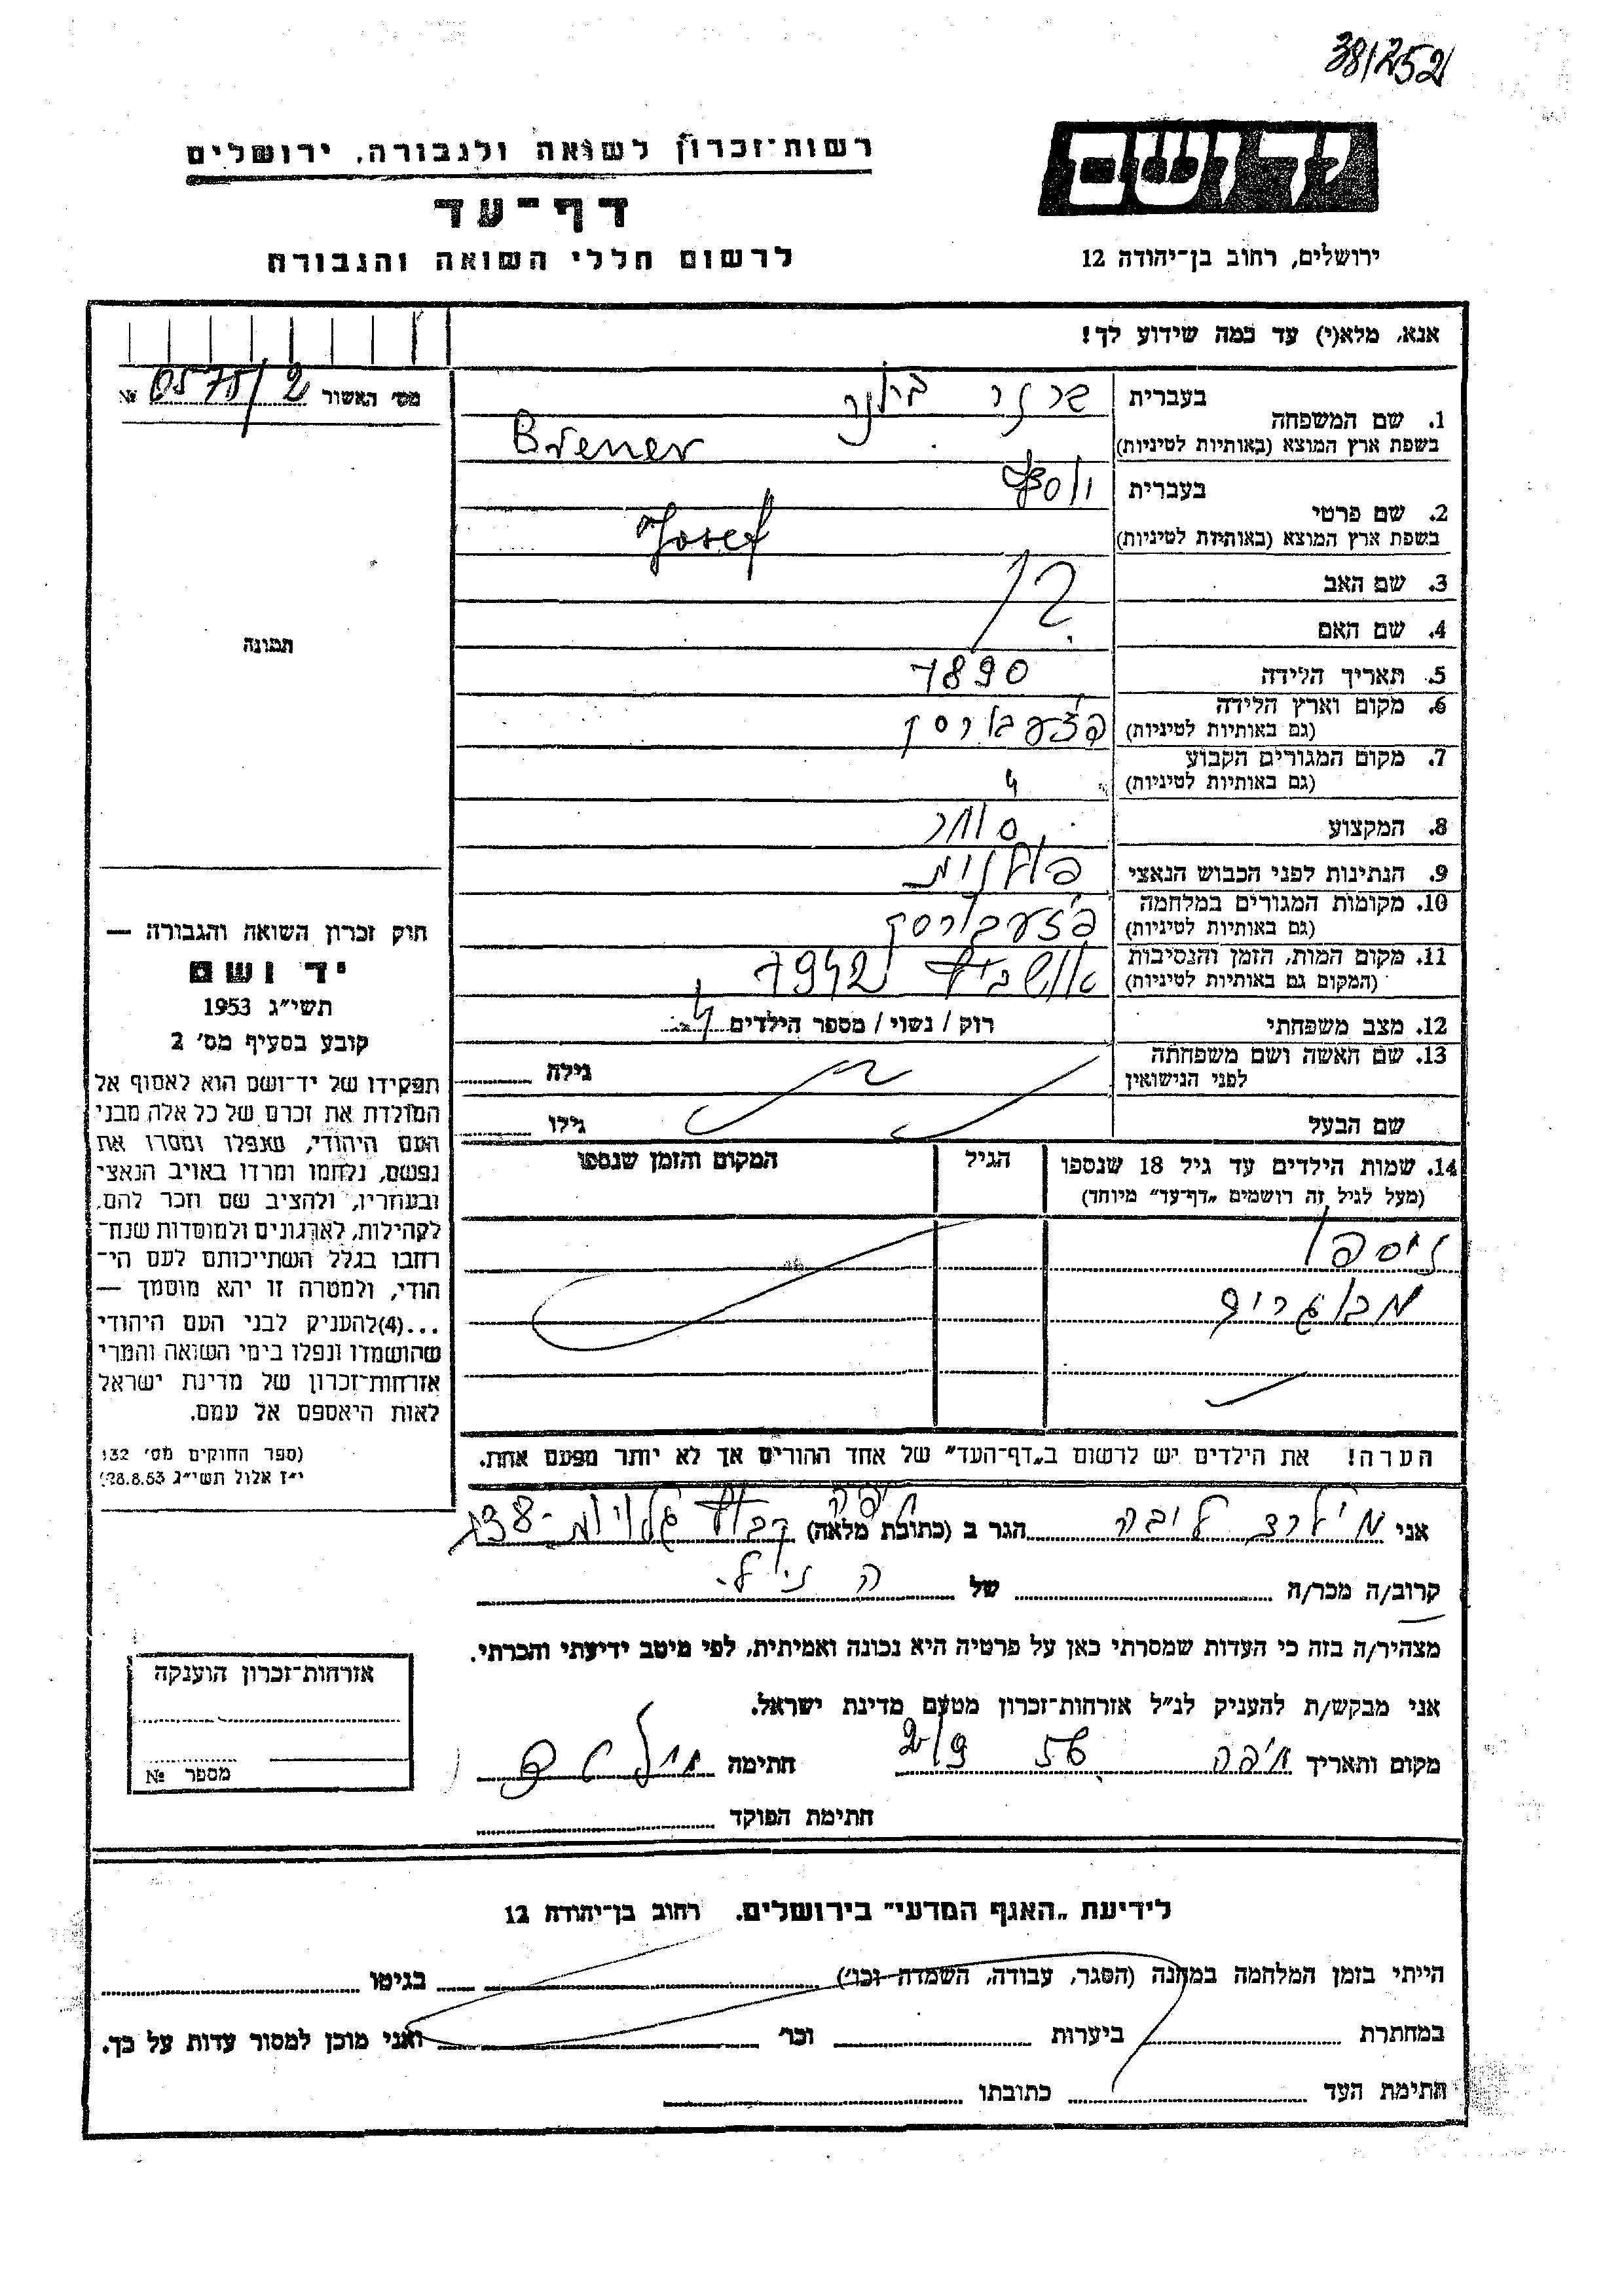 38/252
ידושם
רשות־זכרון לשואה ולגבורה, ירושלים
דף־עד
לרשום חללי השואה והגבורה
ירושלים, רחוב בן־יהודה 12
אנא, מלא(י) עד כמה שידוע לך!
מס׳ האשור 0575/2 №
1. שם המשפחה
בעברית ברנר
בשפת ארץ המוצא (באותיות לטיניות) Brener
2. שם פרטי
בעברית יוסף
בשפת ארץ המוצא (באותיות לטיניות) Josef
3. שם האב
4. שם האם ?
5. תאריך הלידה 1890
6. מקום וארץ הלידה
(גם באותיות לטיניות) פשעבורסק
7. מקום המגורים הקבוע
(גם באותיות לטיניות) "
8. המקצוע סוחר
9. הנתינות לפני הכבוש הנאצי פולנית
10. מקומות המגורים במלחמה
(גם באותיות לטיניות) פשעבורסק
11. מקום המות, הזמן והנסיבות
(המקום גם באותיות לטיניות) אושביץ 1942
12. מצב משפחתי רוק / נשוי / מספר הילדים 4
13. שם האשה ושם משפחתה
לפני הנישואין גילה
שם הבעל גילו
14. שמות הילדים עד גיל 18 שנספו הגיל המקום והזמן שנספו
(מעל לגיל זה רושמים „דף־עד״ מיוחד)
הערה! את הילדים יש לרשום ב„דף־העד״ של אחד ההורים אך לא יותר מפעם אחת.
תמונה
חוק זכרון השואה והגבורה —
יד ושם
תשי״ג 1953
קובע בסעיף מס׳ 2
תפקידו של יד־ושם הוא לאסוף אל
המולדת את זכרם של כל אלה מבני
העם היהודי, שנפלו ומסרו את
נפשם, נלחמו ומרדו באויב הנאצי
ובעוזריו, ולהציב שם וזכר להם,
לקהילות, לארגונים ולמוסדות שנח־
רחבו בגלל השתייכותם לעם הי־
הודי, ולמטרה זו יהא מוסמך —
...(4)להעניק לבני העם היהודי
שהושמדו ונפלו בימי השואה והמרי
אזרחות־זכרון של מדינת ישראל
לאות היאספם אל עמם.
(ספר החוקים מס׳ 132
י״ז אלול תשי״ג 28.8.53)
אני ליובה הגר ב (כתובת מלאה) חיפה קבוץ גלויות 38
קרוב/ה מכר/ה של הנ״ל.
מצהיר/ה בזה כי העדות שמסרתי כאן על פרטיה היא נכונה ואמיתית, לפי מיטב ידיעתי והכרתי.
אני מבקש/ת להעניק לנ״ל אזרחות־זכרון מטעם מדינת ישראל.
מקום ותאריך חיפה 2/9 56 חתימה
חתימת הפוקד
אזרחות־זכרון הוענקה
מספר №
לידיעת „האגף המדעי״ בירושלים. רחוב בן־יהודה 12
הייתי בזמן המלחמה במחנה (הסגר, עבודה, השמדה וכו׳) בגיטו
במחתרת ביערות וכו׳ ואני מוכן למסור עדות על כך.
חתימת העד כתובתו